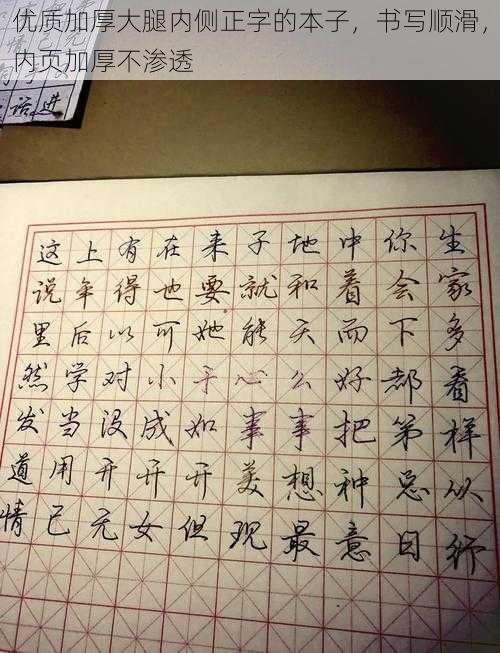 优质加厚大腿内侧正字的本子，书写顺滑，
内页加厚不渗透
话进
这上有在来子地中你生
说年得也要就和着会家
里后以可她能天而下多
然学对小于心么好都看
发当没成如事事把第样
道用开开开美想种总从
情已无女但现最意日行